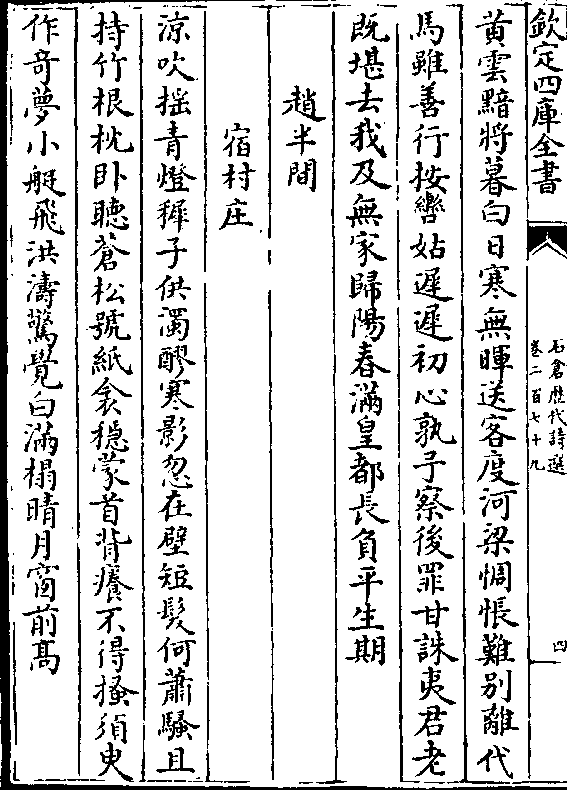 欽定四庫全書
石倉歷代詩選
卷二百七十九
四
黃雲黯將暮白日寒無暉送客度河梁惆悵難别離代
馬雖善行按轡姑遲遲初心孰子察後罪甘誅夷君老
既堪去我及無家歸陽春滿皇都長負平生期
趙半間
宿村庄
凉吹揺青燈穉子供濁醪寒影忽在壁短髮何蕭騷且
持竹根枕卧聽蒼松號紙衾穏蒙首背癢不得搔須臾
作奇夢小艇飛洪濤驚覺白滿榻晴月窗前髙